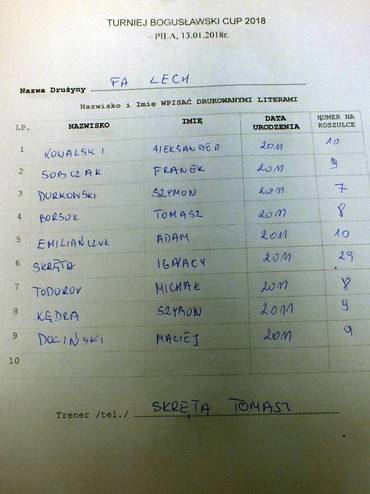 TURNIEJ BOGUSŁAWSKI CUP 2018
– PIŁA, 13.01.2018r.
Nazwa Drużyny FA LECH
Nazwisko i Imię WPISAĆ DRUKOWANYMI LITERAMI
LP. NAZWISKO IMIĘ DATA URODZENIA NUMER NA KOSZULCE
1 KOWALSKI ALEKSANDER 2011 10
2 SOBCZAK FRANEK 2011 9
3 DURKOWSKI SZYMON 2011 7
4 BORSUK TOMASZ 2011 8
5 EMILIAŃCZYK ADAM 2011 10
6 SKRĘTA IGNACY 2011 29
7 TODOROV MICHAŁ 2011 8
8 KĘDRA SZYMON 2011 9
9 DOLIŃSKI MACIEJ 2011 9
10
Trener /tel./ SKRĘTA TOMASZ